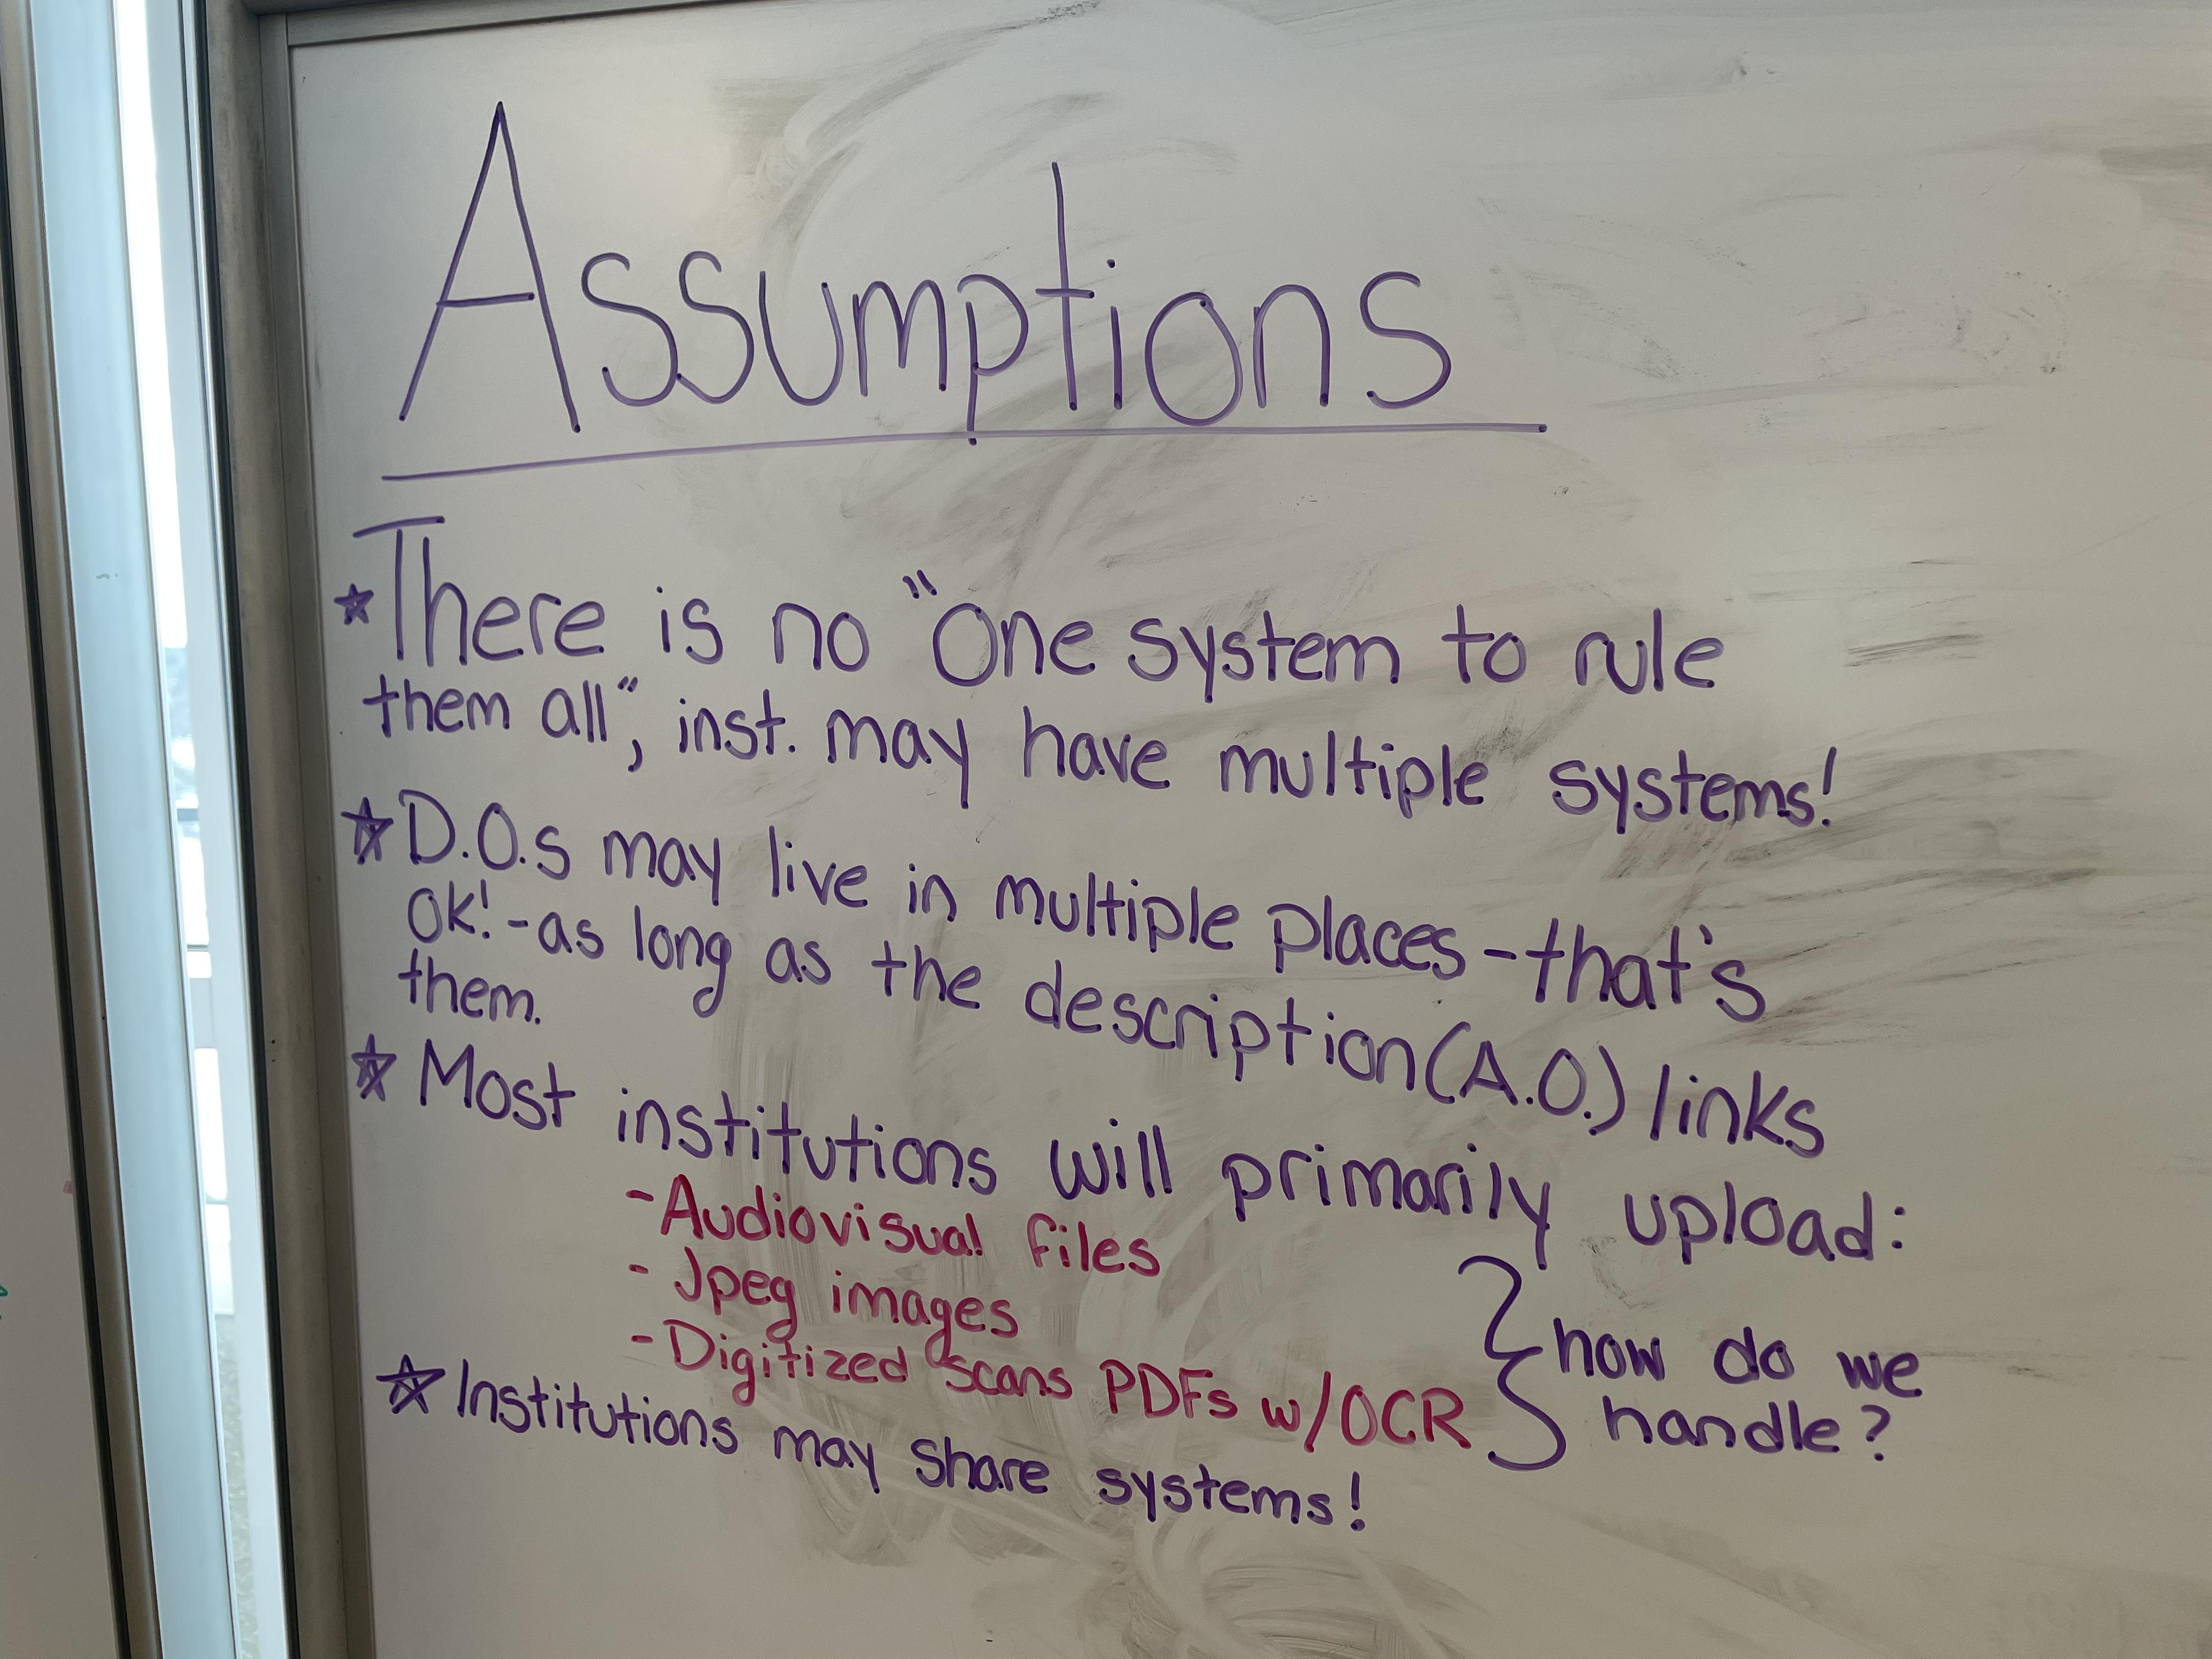 Assumptions
☆There is no "One system to rule
them all", inst. may have multiple systems!
☆D.O.s may live in multiple places - that's
OK! - as long as the description (A.O.) links
them.
☆Most institutions will primarily upload:
- Audiovisual files
- Jpeg images
- Digitized scans PDFs w/OCR
} how do we
handle?
☆Institutions may share systems!